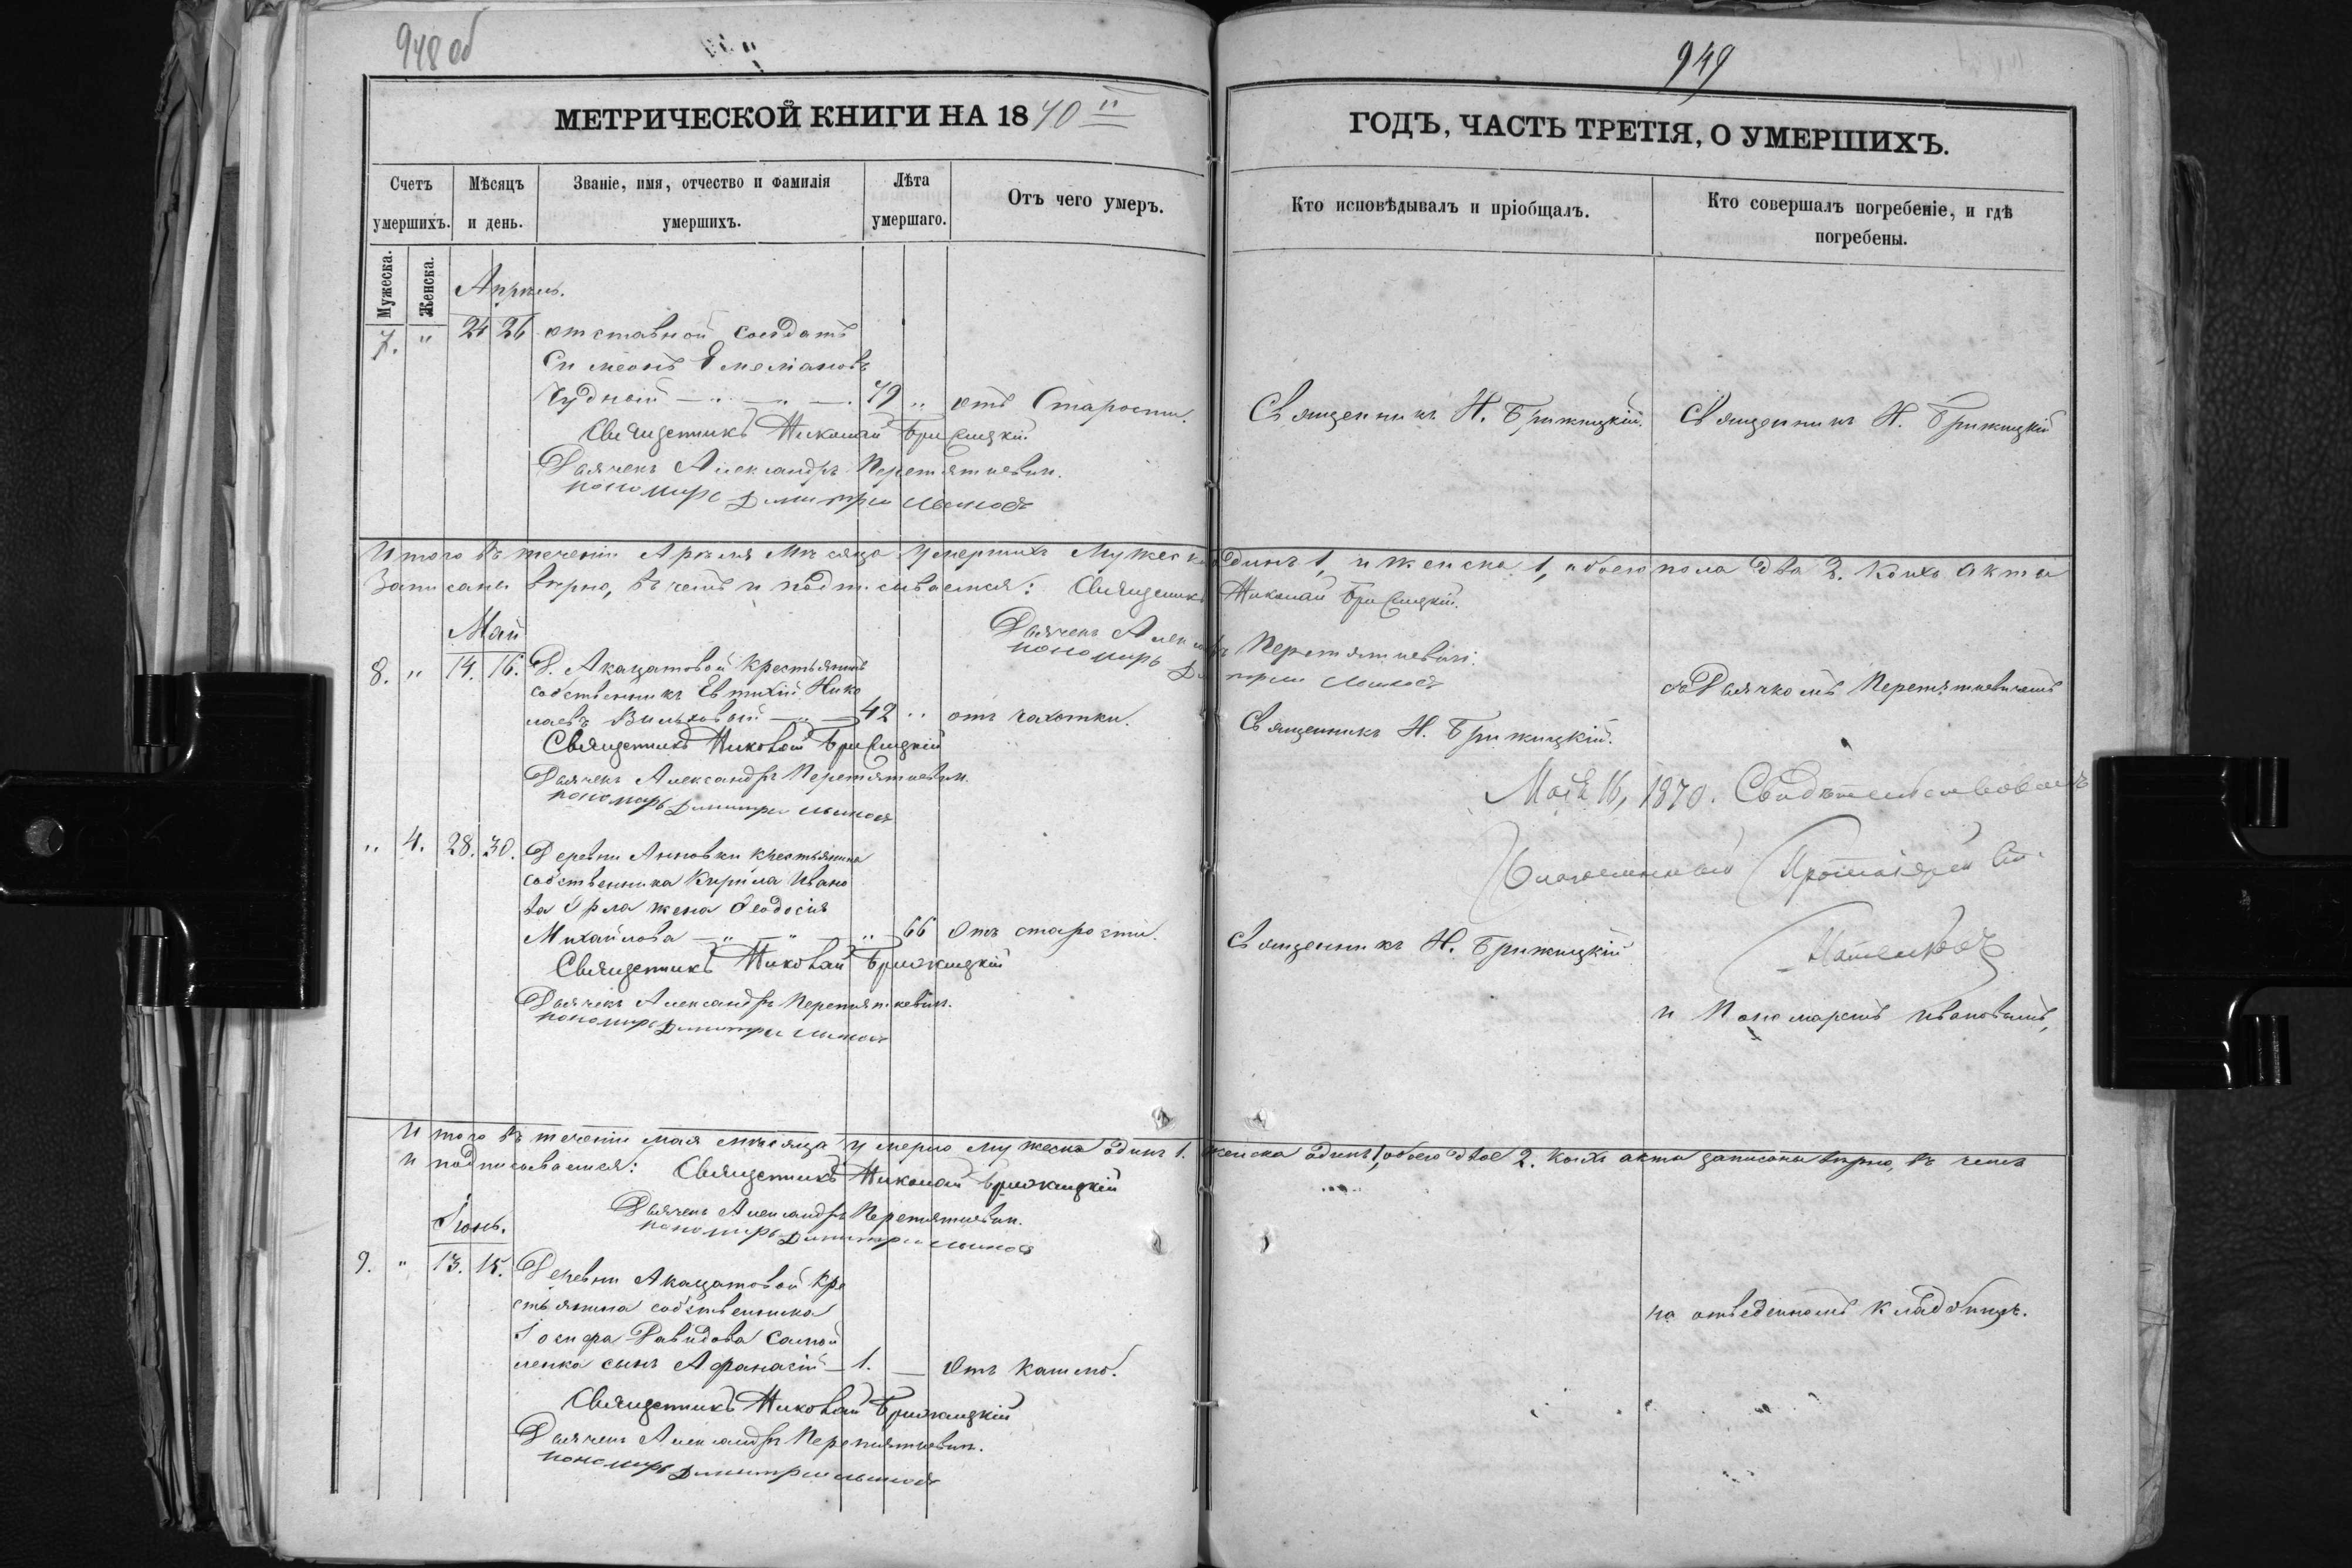 948 об
МЕТРИЧЕСКОЙ КНИГИ НА 1870
Счетъ умершихъ.
Мѣсяцъ и день.
Званіе, имя, отчество и фамилія умершихъ.
Лѣта умершаго.
Отъ чего умеръ.
Мужеска.
Женска.
Апрѣль.
7. " 24 26 отставной солдатъ
Симеонъ Емеліановъ
Чудный 79 " отъ Старости.
Священникъ Николай Брижицкій
Дьячекъ Александръ Перетяткевич.
пономарь Димитрій
Итого въ теченіи Апрѣля мѣсяца умершихъ мужеска одинъ 1, и женска 1, обоего пола два 2. Коихъ акты
Записаны вѣрно, въ чемъ и подписываемся: Священникъ Николай Брижицкій.
Дьячекъ Александръ Перетяткевич.
пономарь Димитрій
Май
8. " 14. 16. Д. Акацатовой крестьянинъ
собственникъ Евтихій Нико
лаевъ Вильховый 42 " отъ чахотки.
Священникъ Николай Брижицкій
Дьячекъ Александръ Перетяткевич.
пономарь Димитрій
" 4. 28. 30. Деревни Анновки крестьянина
собственника Кирила Ивано
ва Орла жена Феодосія
Михайлова 66 Отъ старости.
Священникъ Николай Брижицкій
Дьячекъ Александръ Перетяткевич.
пономарь Димитрій
Итого въ теченіи мая мѣсяца умерло мужеска одинъ 1. женска одинъ 1, обоего двое 2. Коихъ акты записаны вѣрно, въ чемъ
и подписываемся: Священникъ Николай Брижицкій
Дьячекъ Александръ Перетяткевич.
пономарь Димитрій
Іюнь.
9. " 13. 15. Деревни Акацатовой кре
стьянина собственника
Іосифа Давидова Самой
ленка сынъ Афанасій 1. Отъ кашлю.
Священникъ Николай Брижицкій
Дьячекъ Александръ Перетяткевич.
пономарь Димитрій
949
ГОДЪ, ЧАСТЬ ТРЕТІЯ, О УМЕРШИХЪ.
Кто исповѣдывалъ и пріобщалъ.
Кто совершалъ погребеніе, и гдѣ погребены.
Священникъ Н. Брижицкій. Священникъ Н. Брижицкій
съ Дьячкомъ Перетяткевичемъ
Священникъ Н. Брижицкій.
Мая 16, 1870. Свидѣтельствовалъ
Протоіерей
Священникъ Н. Брижицкій
и Пономаремъ Ивановымъ,
на отведенномъ кладбищѣ.